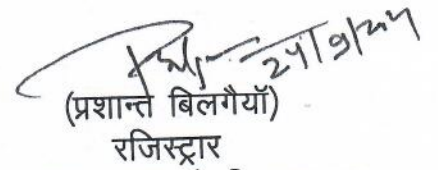 24/9/24
(प्रशान्त बिलगैयॉ)
रजिस्ट्रार